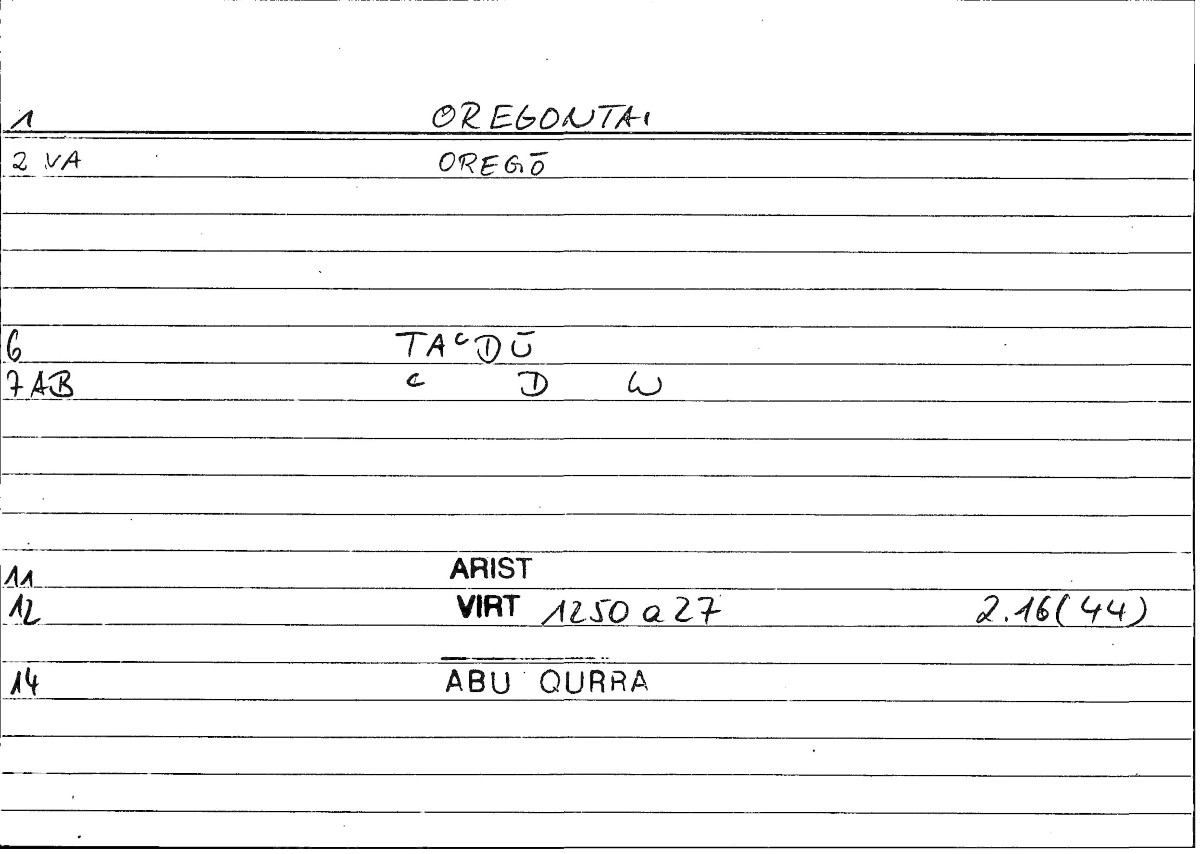 1 OREGONTAI
2 VA OREGŌ
6 TAᶜDŪ
7 AB ᶜ D W
11 ARIST
12 VIRT 1250 a 27 2.16(44)
14 ABU QURRA